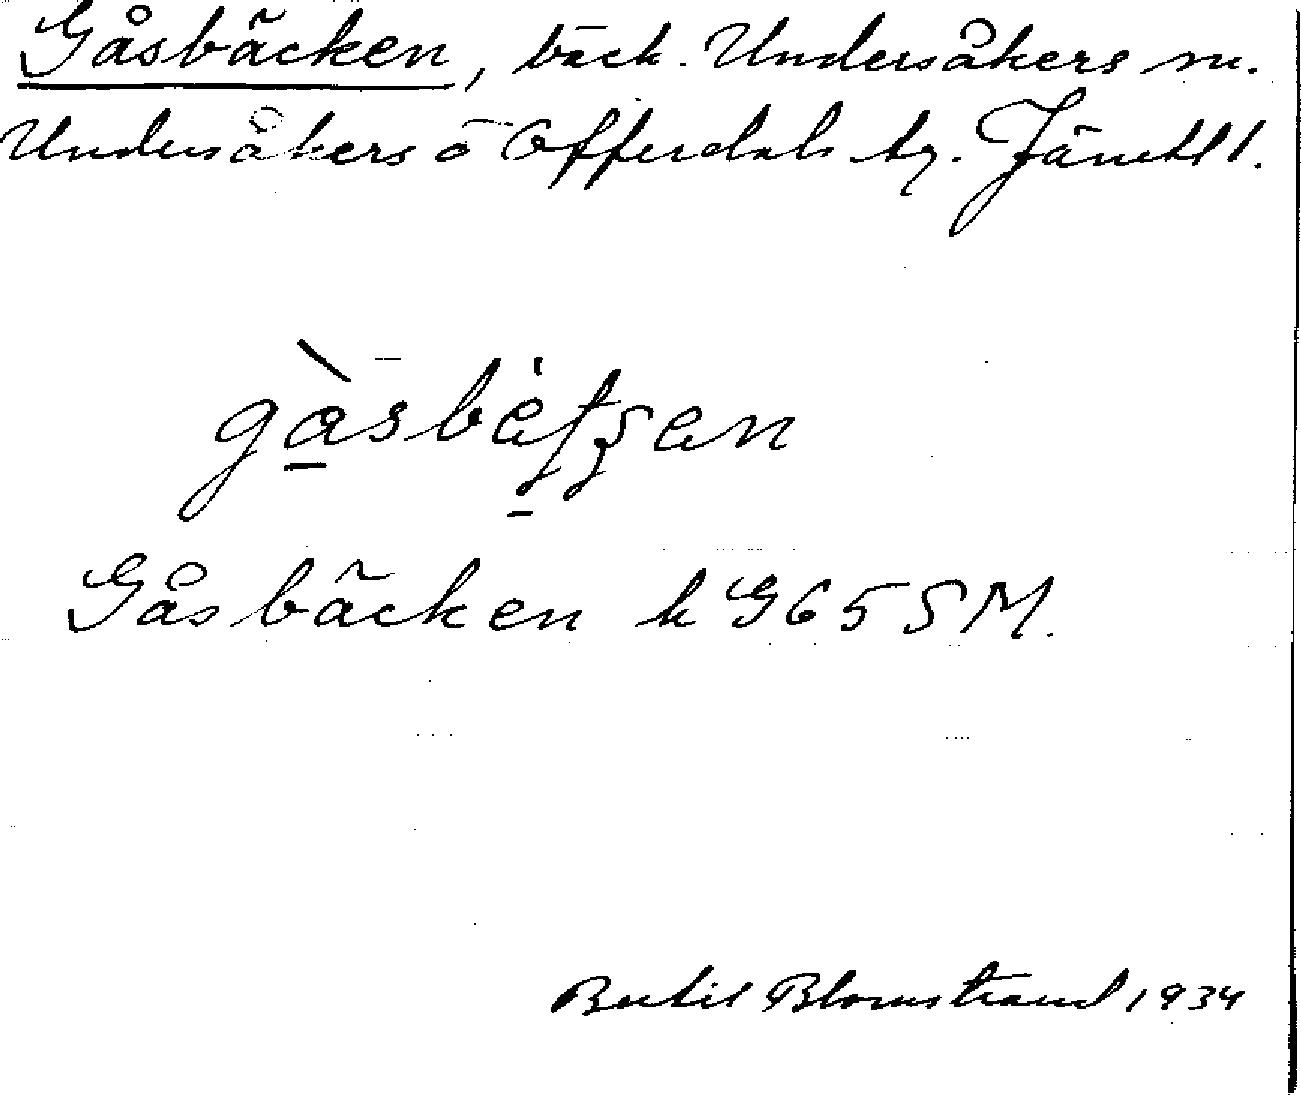 Gåsbäcken, bäck. Undersåkers sn.
Undersåkers o Offerdals tg. Jämtl l.
gàsbätʃen
Gåsbäcken k G65SM.
Bertil Blomstrand 1934